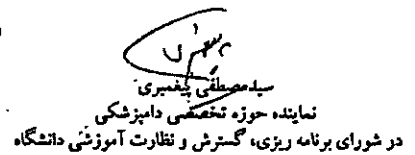 سیدمصطفی پیغمبری
نماینده حوزه تخصصی دامپزشکی
در شورای برنامه ریزی، گسترش و نظارت آموزشی دانشگاه